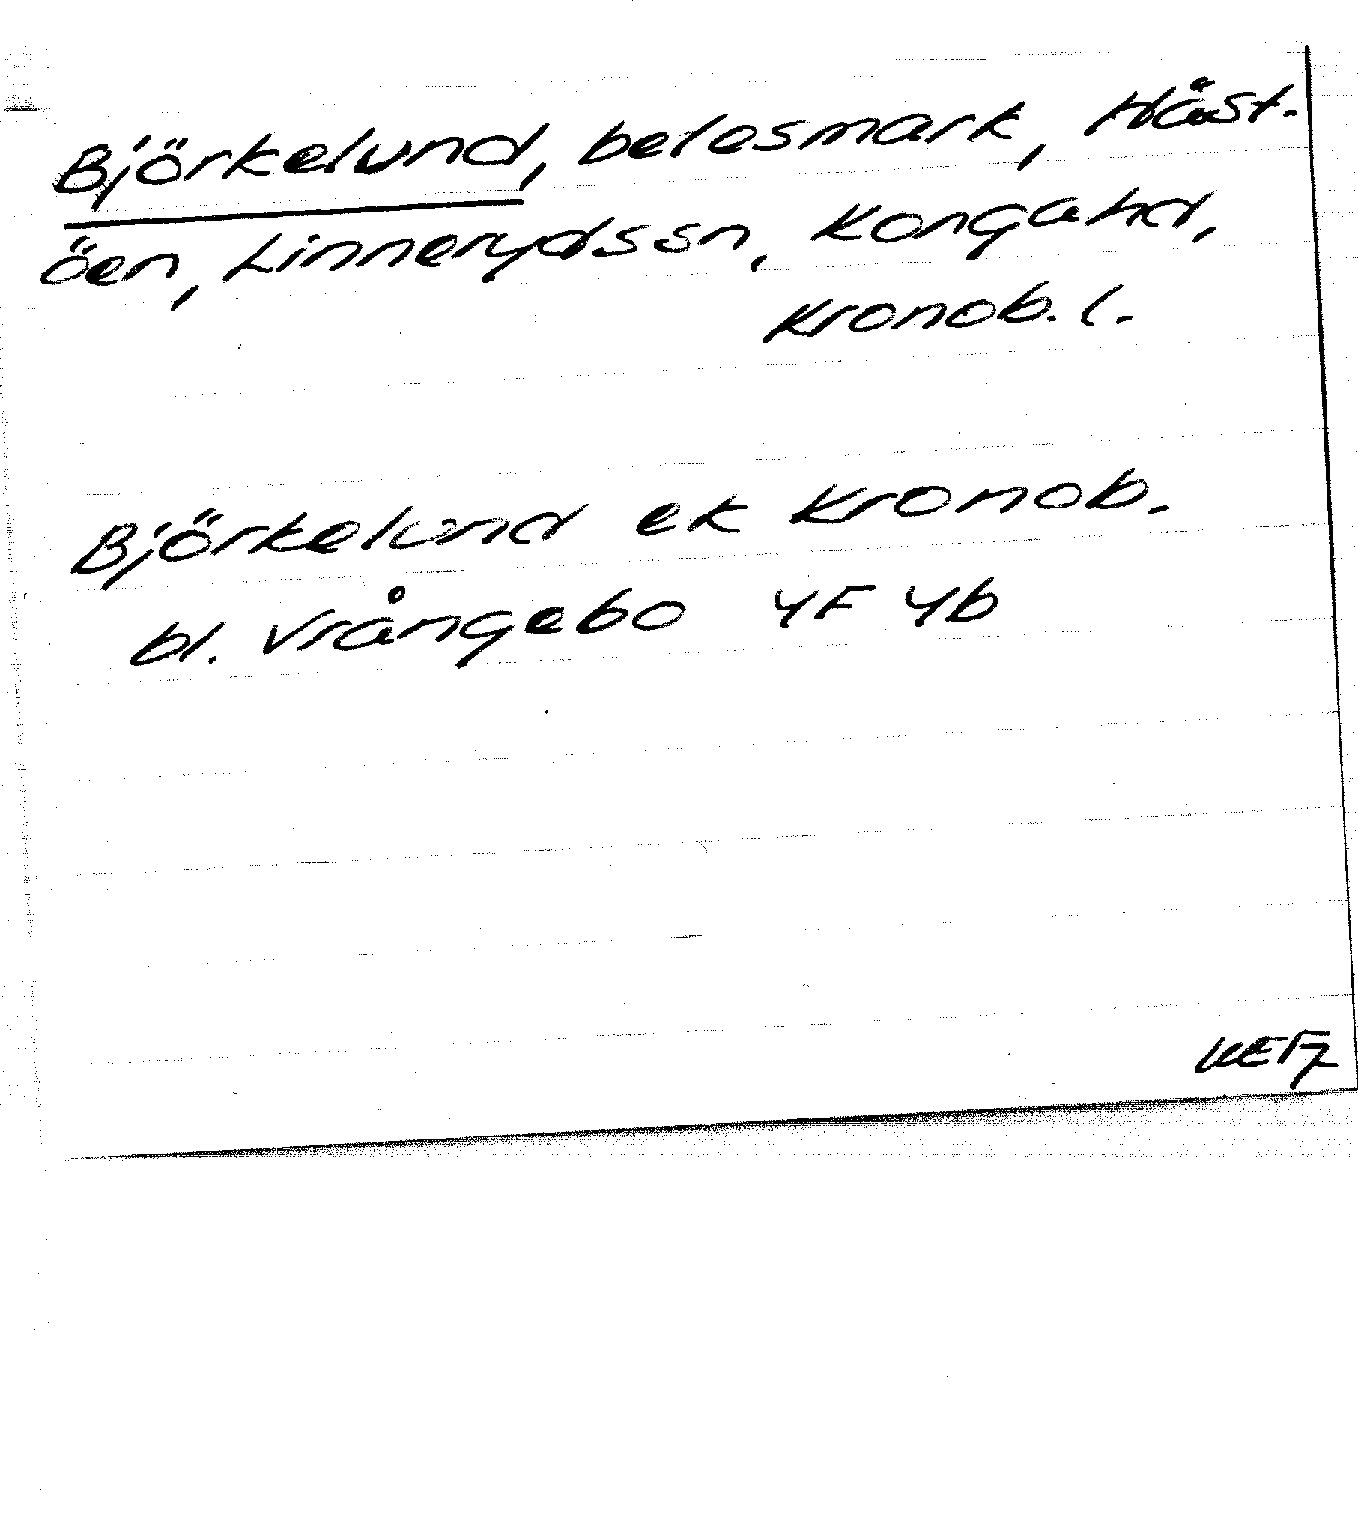 Björkelund, betesmark, Håst-
öen, Linnerydssn, Konga hd,
Kronob. l.
Björkelund ek Kronob.
bl. Vrångebo 4F 4b